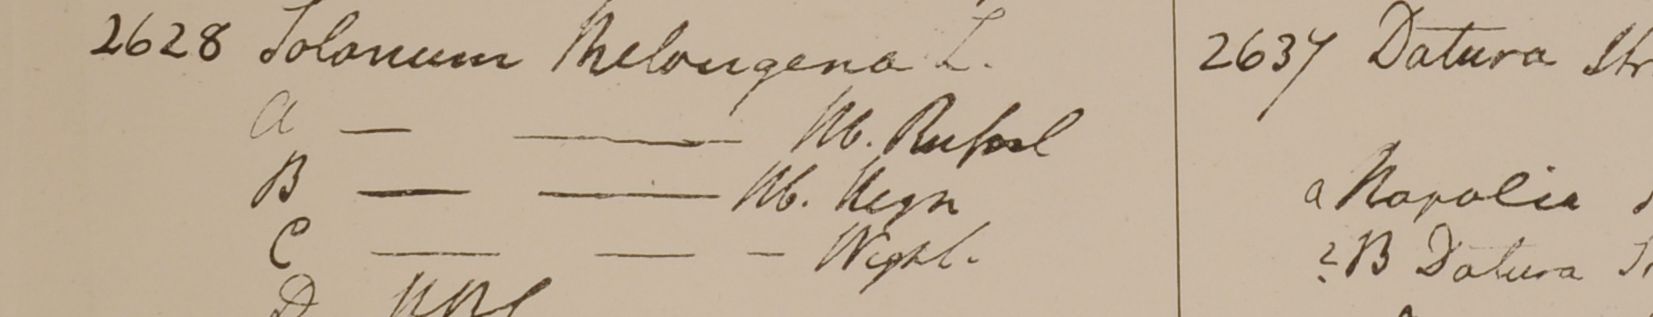 2628 Solanum Melongena L.
A — — Hb. Russel
B — — Hb. Heyn
C — — — Wight.
D HBC
2637 Datura Str
a Napalia
2 B Datura